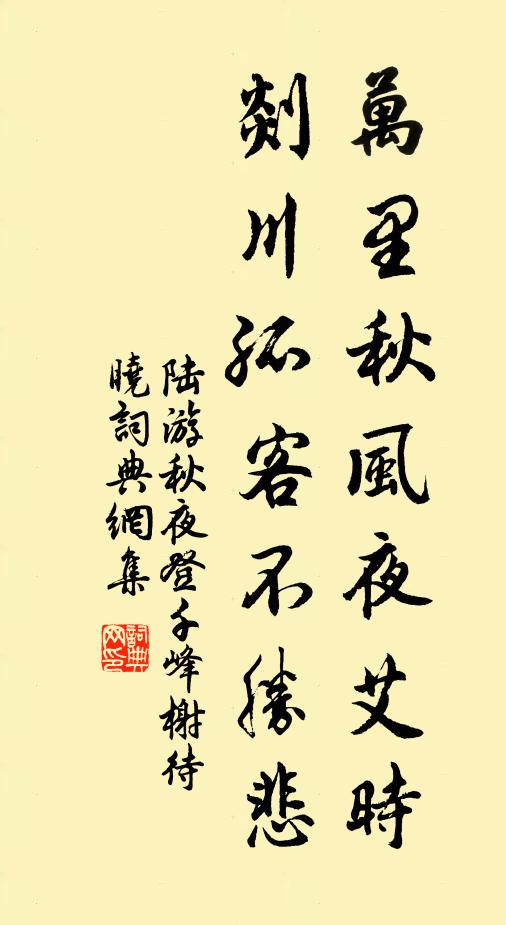 萬里秋風夜艾時
剡川孤客不勝悲
陆游秋夜登千峰榭待
曉詞典網集
詞典
网印